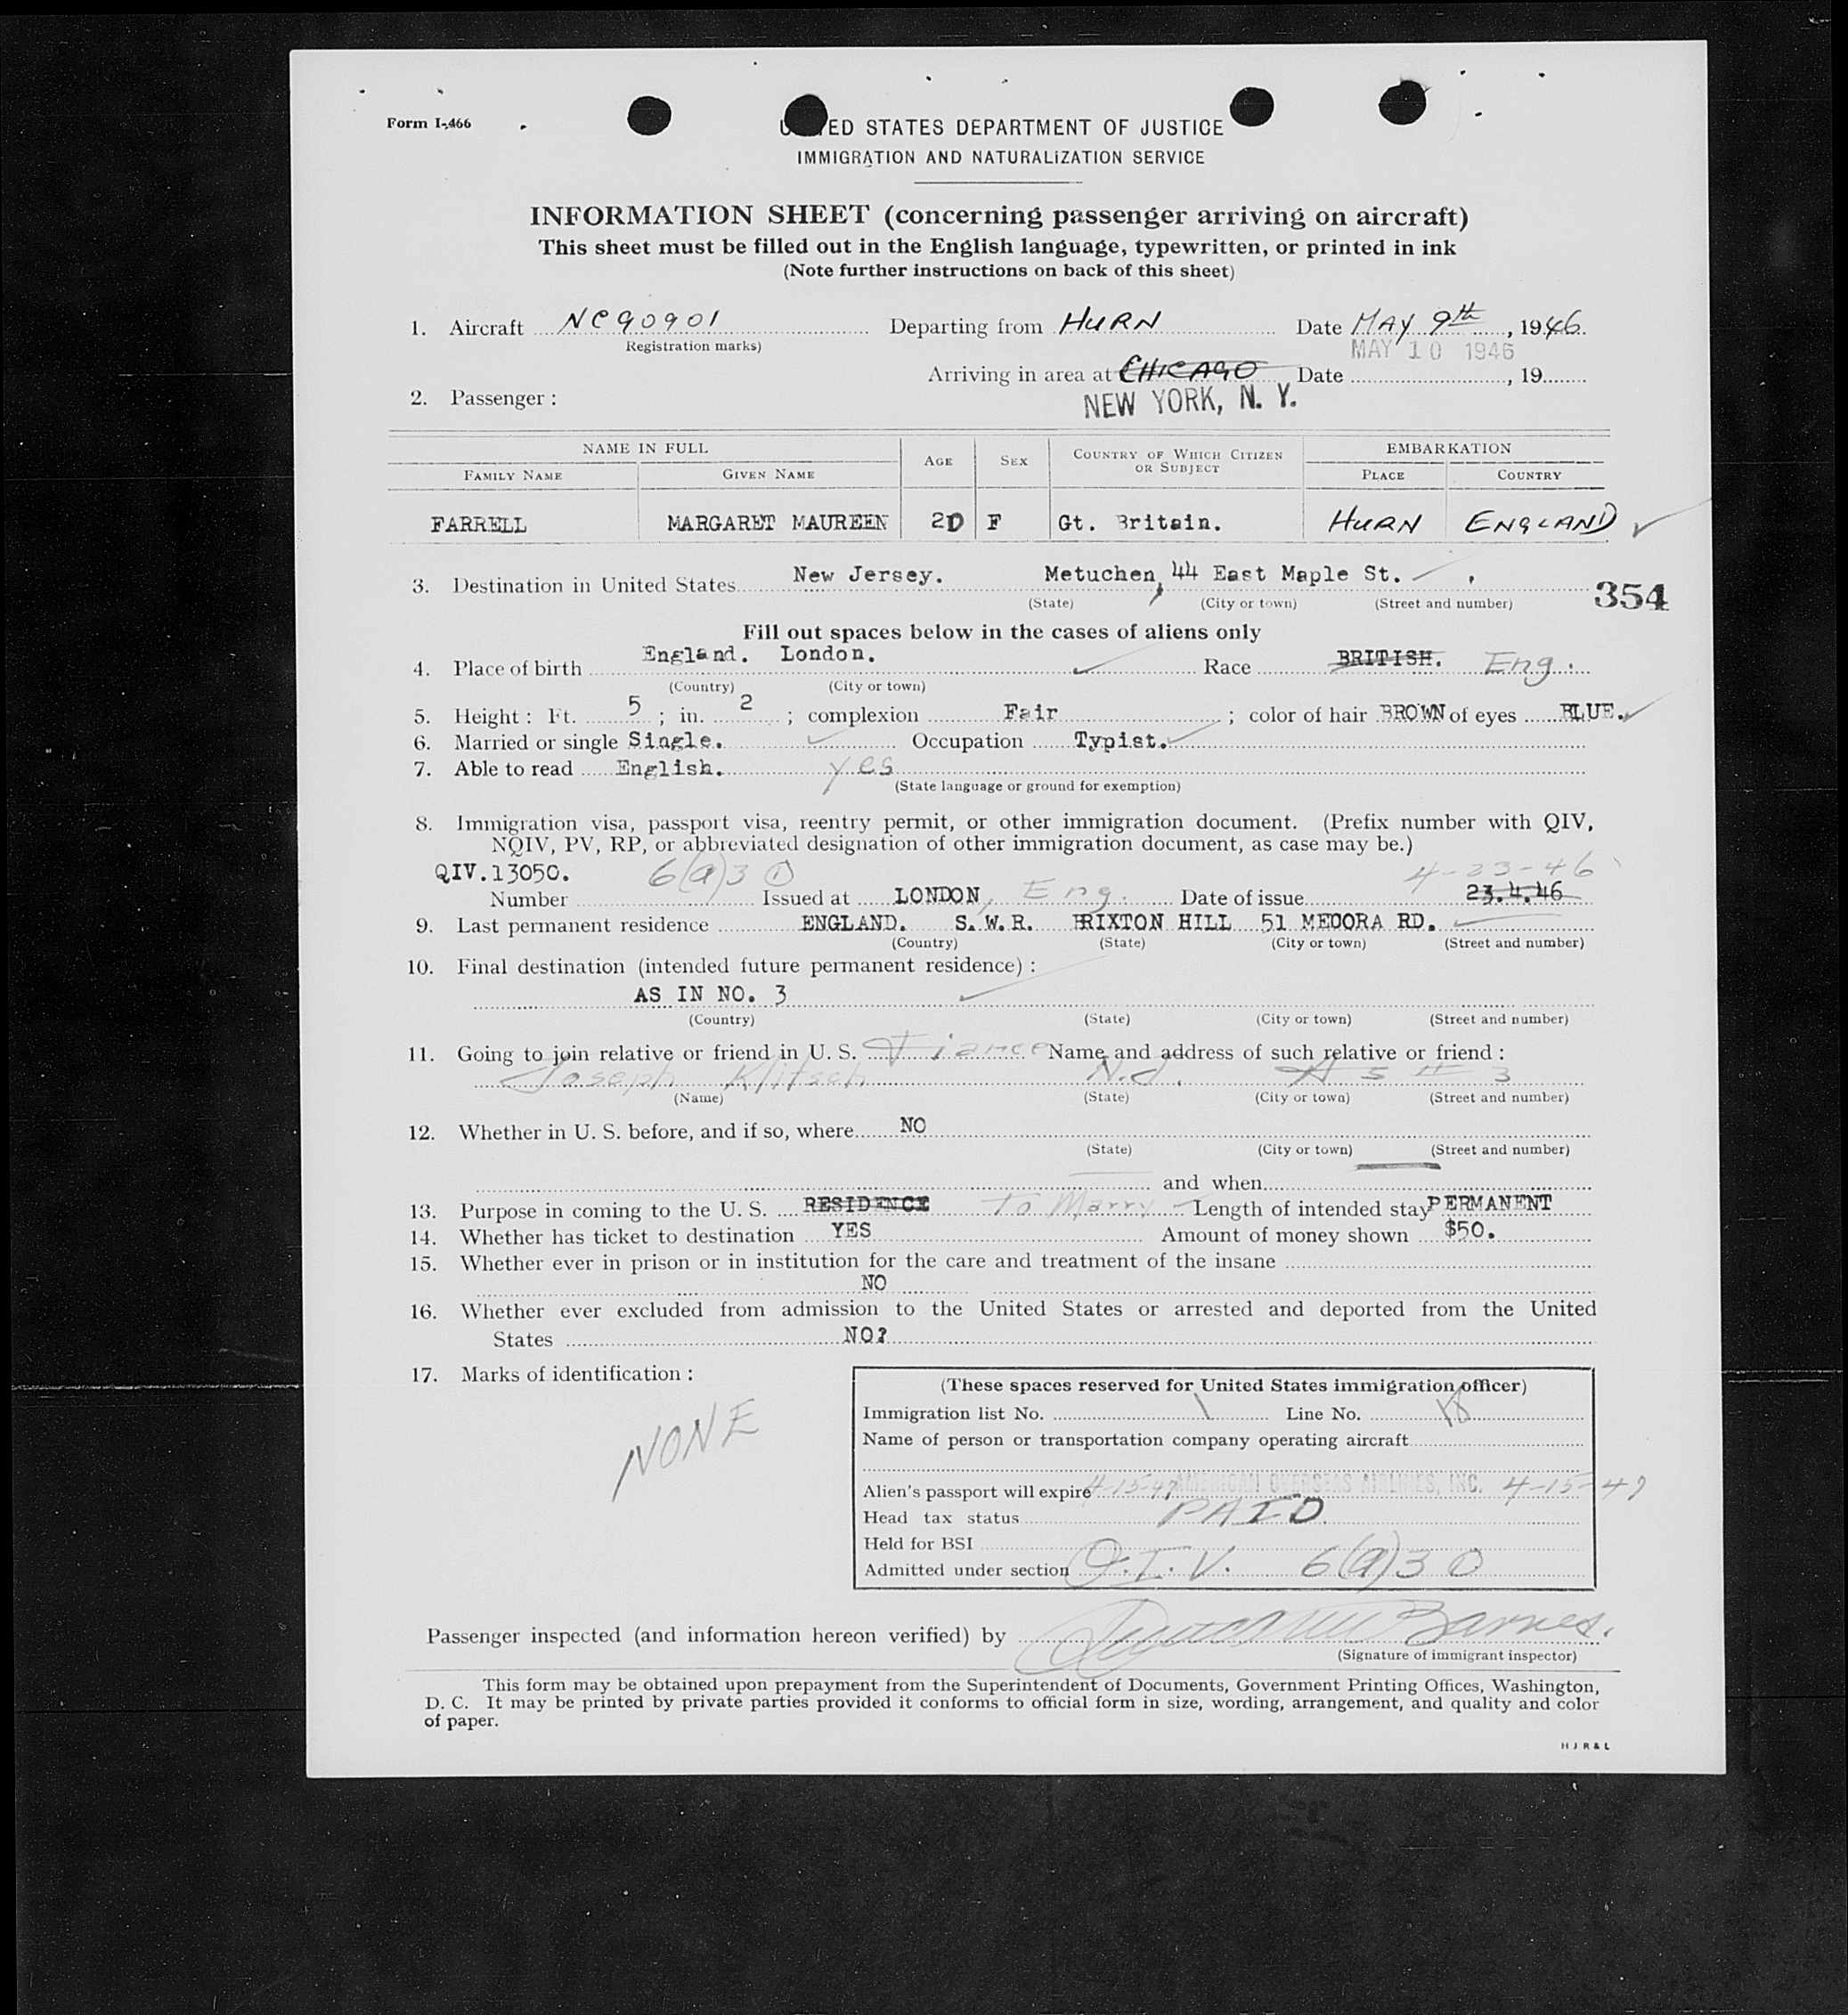 Form I-466
UNITED STATES DEPARTMENT OF JUSTICE
IMMIGRATION AND NATURALIZATION SERVICE
INFORMATION SHEET (concerning passenger arriving on aircraft)
This sheet must be filled out in the English language, typewritten, or printed in ink
(Note further instructions on back of this sheet)
1. Aircraft NC90901 Departing from HURN Date MAY 9th, 1946.
Registration marks) MAY 10 1946
Arriving in area at CHICAGO Date , 19
2. Passenger : NEW YORK, N. Y.
NAME IN FULL AGE SEX COUNTRY OF WHICH CITIZEN OR SUBJECT EMBARKATION
FAMILY NAME GIVEN NAME PLACE COUNTRY
FARRELL MARGARET MAUREEN 20 F Gt. Britain. HURN ENGLAND
3. Destination in United States New Jersey. Metuchen, 44 East Maple St.
(State) (City or town) (Street and number) 354
Fill out spaces below in the cases of aliens only
4. Place of birth England. London. Race BRITISH. Eng.
(Country) (City or town)
5. Height : Ft. 5 ; in. 2 ; complexion Fair ; color of hair BROWN of eyes BLUE.
6. Married or single Single. Occupation Typist.
7. Able to read English. yes
(State language or ground for exemption)
8. Immigration visa, passport visa, reentry permit, or other immigration document. (Prefix number with QIV,
NQIV, PV, RP, or abbreviated designation of other immigration document, as case may be.)
QIV.13050. 6(a)3 4-23-46
Number Issued at LONDON, Eng. Date of issue 23.4.46
9. Last permanent residence ENGLAND. S.W.R. BRIXTON HILL 51 MEDORA RD.
(Country) (State) (City or town) (Street and number)
10. Final destination (intended future permanent residence) :
AS IN NO. 3
(Country) (State) (City or town) (Street and number)
11. Going to join relative or friend in U. S. Fiance Name and address of such relative or friend :
Joseph Klitsch N.J. As # 3
(Name) (State) (City or town) (Street and number)
12. Whether in U. S. before, and if so, where NO
(State) (City or town) (Street and number)
and when
13. Purpose in coming to the U. S. RESIDENCE To Marry Length of intended stay PERMANENT
14. Whether has ticket to destination YES Amount of money shown $50.
15. Whether ever in prison or in institution for the care and treatment of the insane
NO
16. Whether ever excluded from admission to the United States or arrested and deported from the United
States NO?
17. Marks of identification :
NONE
(These spaces reserved for United States immigration officer)
Immigration list No. 1 Line No. 18
Name of person or transportation company operating aircraft
AMERICAN OVERSEAS AIRLINES, INC.
Alien's passport will expire 4-15-47 4-15-47
Head tax status PAID
Held for BSI
Admitted under section Q.I.V. 6(a)3 0
Passenger inspected (and information hereon verified) by Barnes.
(Signature of immigrant inspector)
This form may be obtained upon prepayment from the Superintendent of Documents, Government Printing Offices, Washington,
D. C. It may be printed by private parties provided it conforms to official form in size, wording, arrangement, and quality and color
of paper.
H J R & L